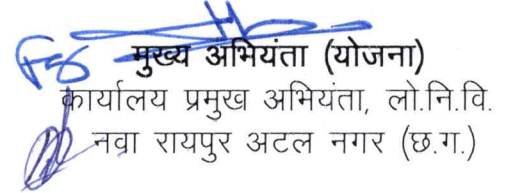 मुख्य अभियंता (योजना)
कार्यालय प्रमुख अभियंता, लो.नि.वि.
नवा रायपुर अटल नगर (छ.ग.)